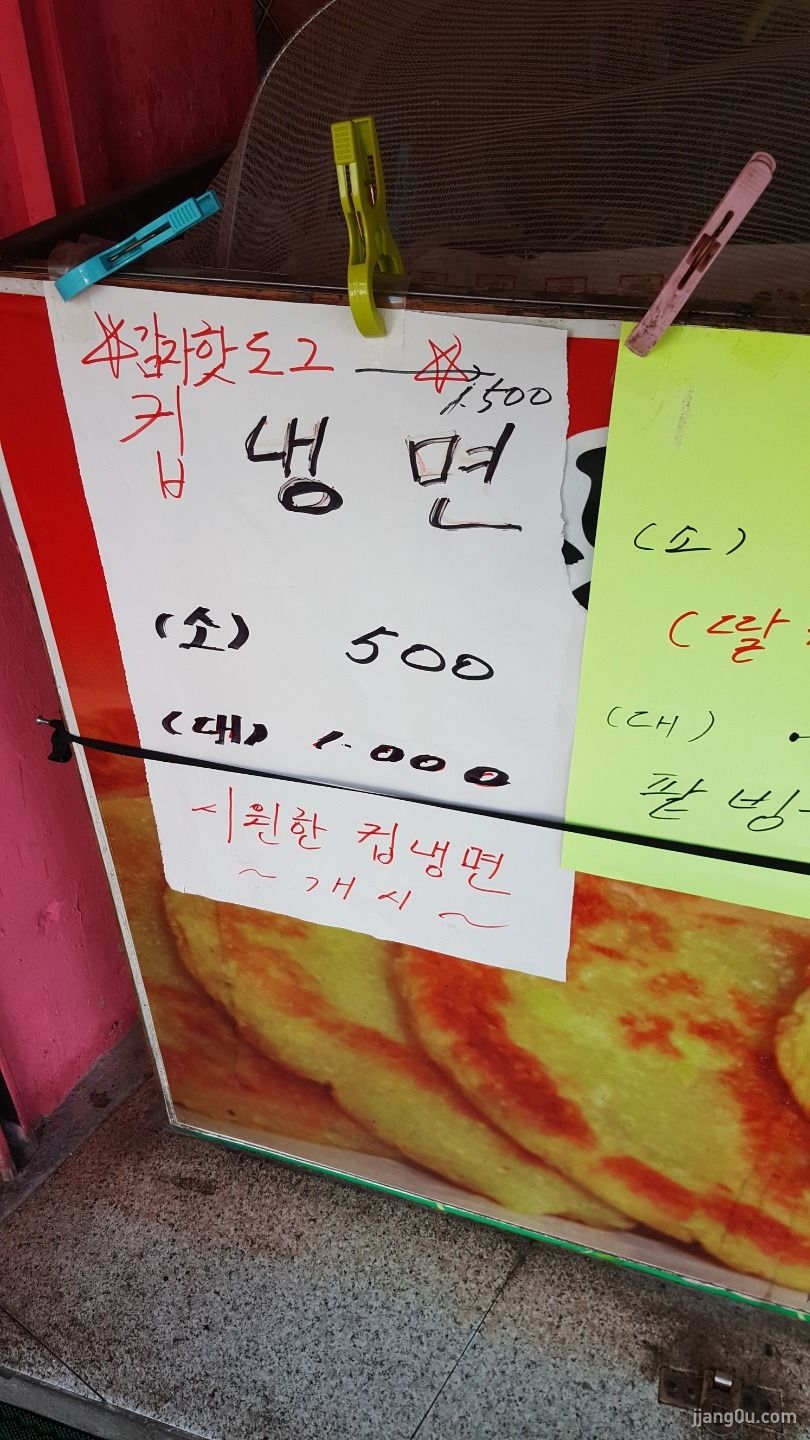 감자핫도그
1.500
컵 냉면
(소) 500
(대) 1.000
시원한 컵냉면
~ 개시 ~
(소)
(딸
(대)
팥빙
jjang0u.com